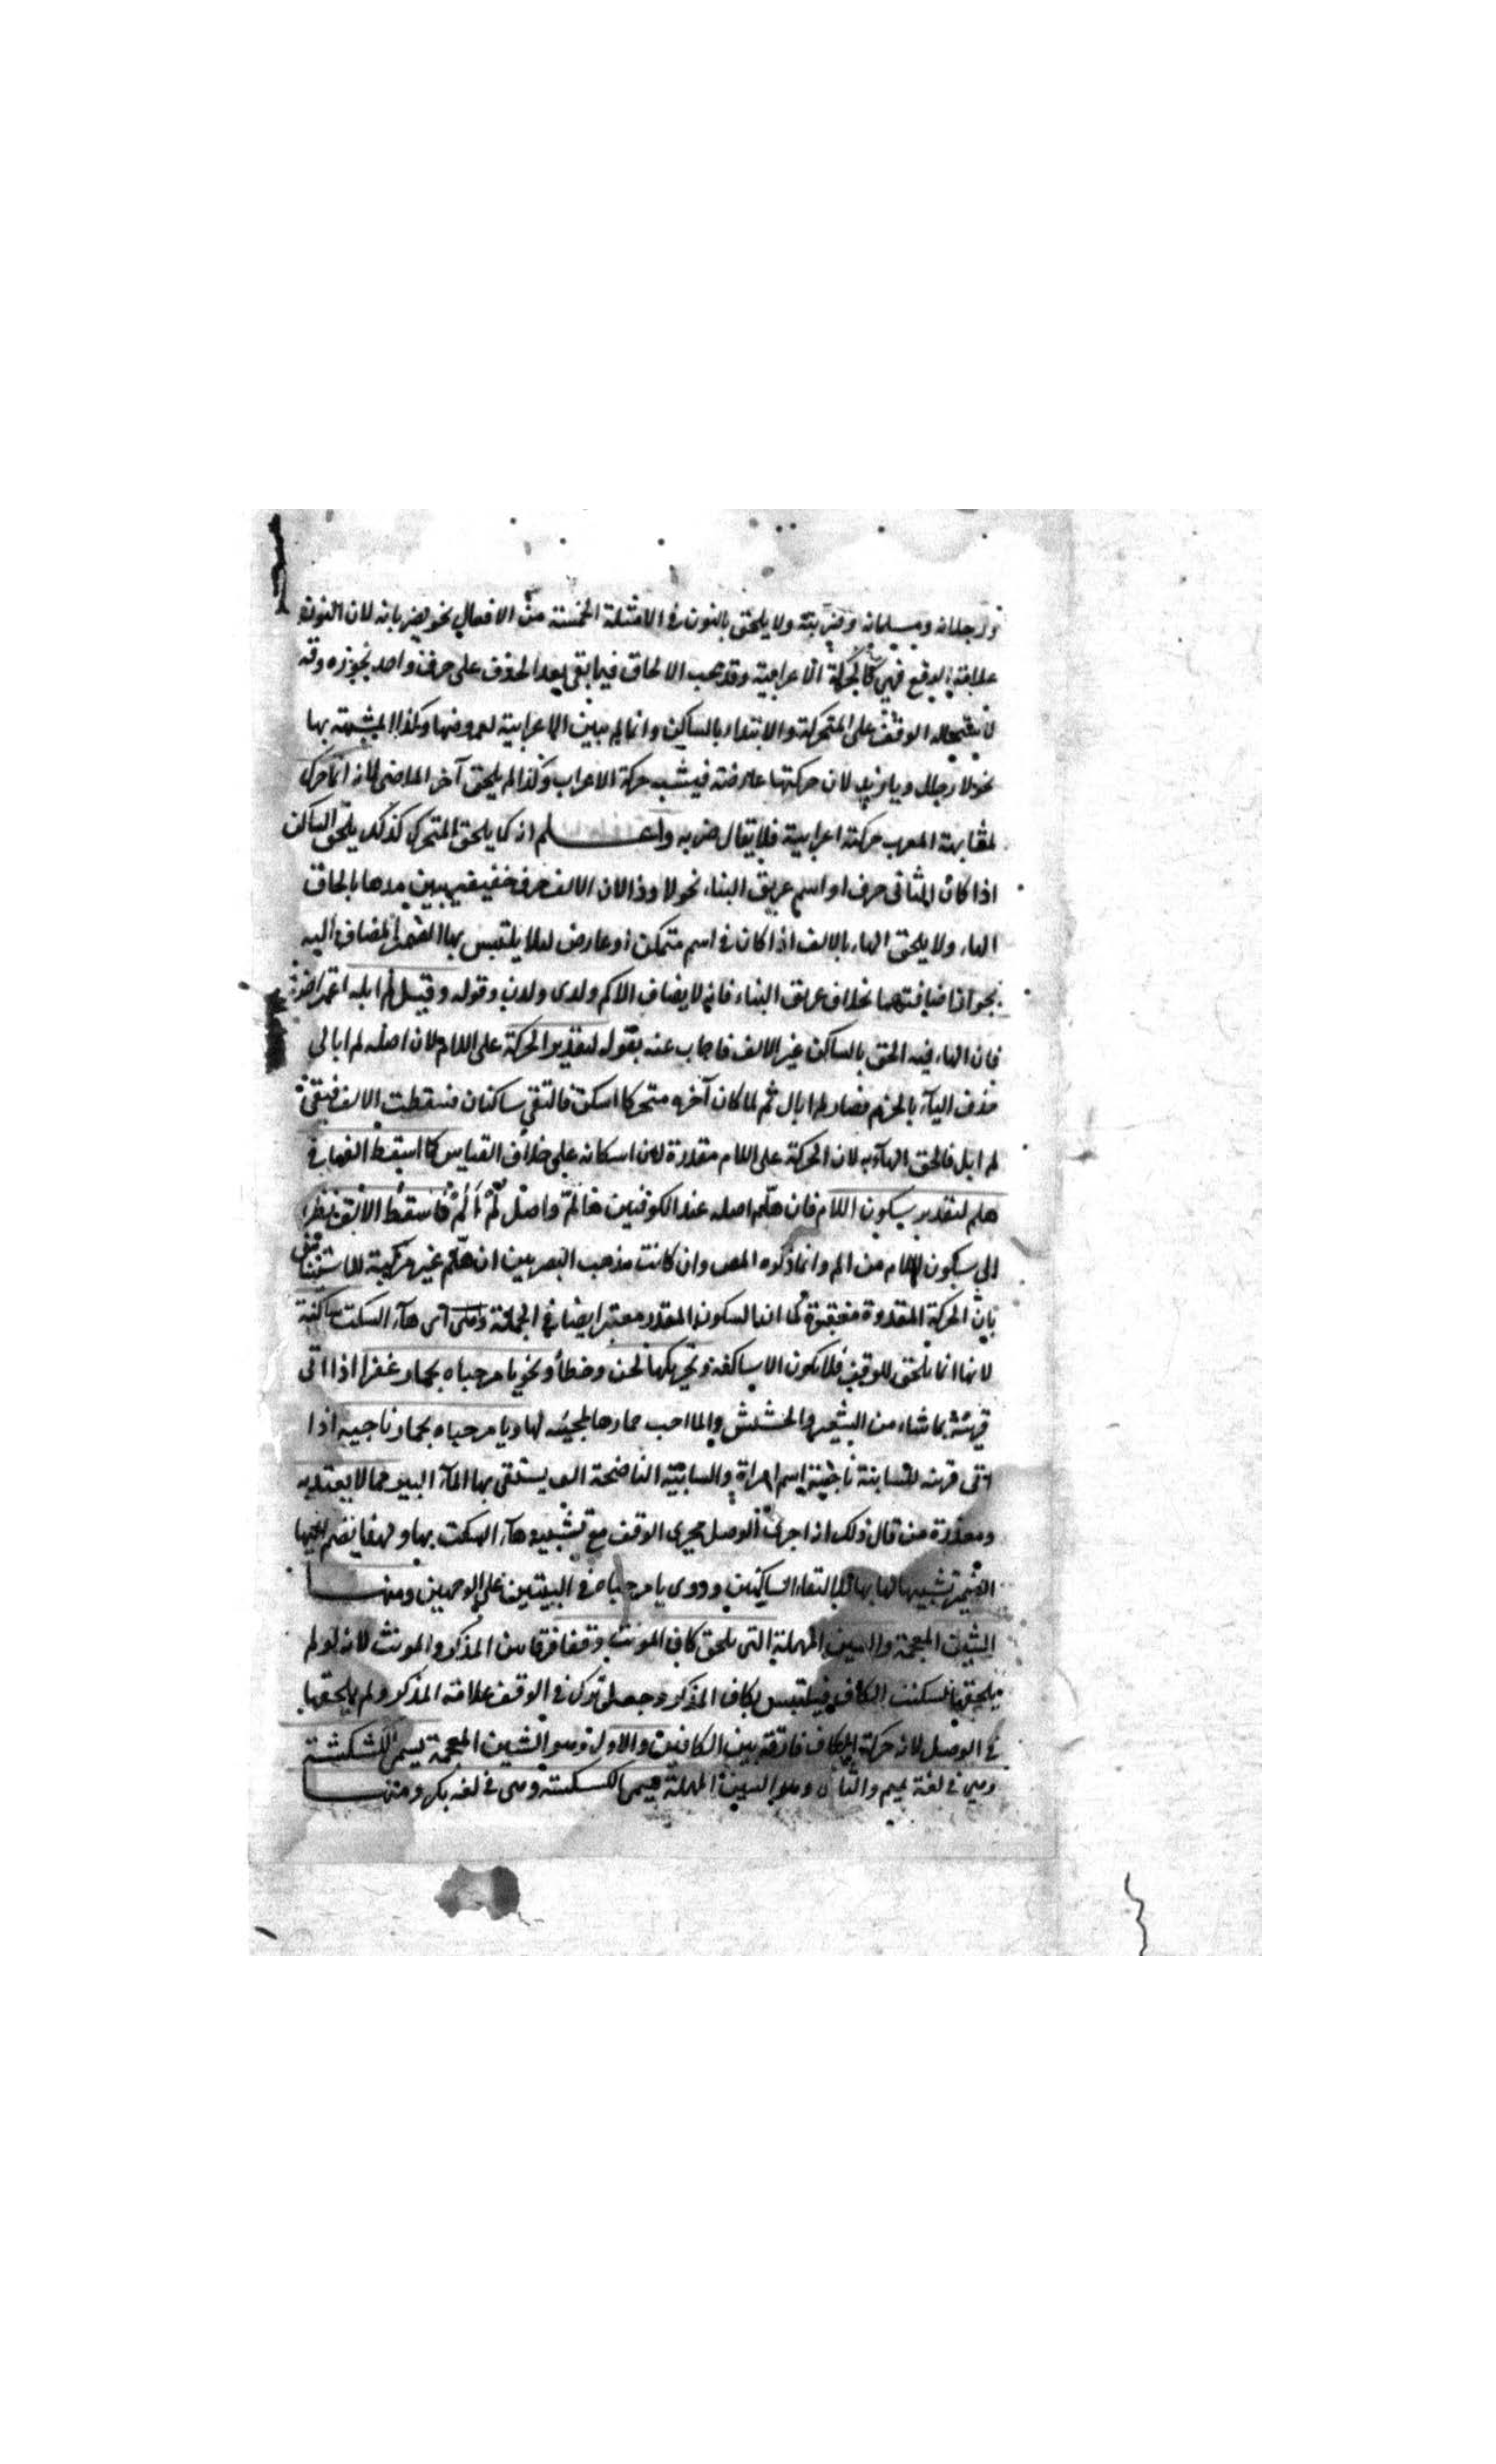 ورجلانه ومسلمانه وضربته ولا يلحق بالنون في الامثلة الخمسة من الافعال نحو يضربانه لان النون
علامة الرفع فهي كالحركة الاعرابية وقد يجب الالحاق فيما بقي بعد الحذف على حرف واحد نحو ره وقه
لاستحالة الوقف على المتحركة والابتداء بالساكن وانما لم يبين الاعرابية لعروضها وكذا المشبهة بها
نحو لا رجل ويا زيد لان حركتها عارضة فيشبه حركة الاعراب وكذا لم يلحق آخر الماضي لانه انما حرك
لمشابهة المعرب حركة اعرابية فلا يقال ضربه واعلم انه كما يلحق المتحرك كذلك يلحق الساكن
اذا كان الثاني حرف او اسم عريق البناء نحو لا وذا لان الالف حرف خفيفة يبين مدها بالحاق
الهاء ولا يلحق الهاء بالالف اذا كان في اسم متمكن او عارض لئلا يلتبس بها الضمير المضاف اليه
بجواز اضافتهما بخلاف عريق البناء فانه لا يضاف الا كم ولدى ولدن وقوله وقيل لم ابله اعتراض
فان الهاء فيه الحق بالساكن غير الالف فاجاب عنه بقوله لتقدير الحركة على اللام لان اصله لم ابالي
حذف الياء بالجزم فصار لم ابال ثم لما كان آخره متحركا اسكن فالتقي ساكنان فسقطت الالف فبقي
لم ابل فالحق الهاء به لان الحركة على اللام مقدرة لان اسكانه على خلاف القياس كما اسقط الفها في
هلم لتقدير سكون اللام فان هلم اصله عند الكوفيين ها لم واصل لم ألمم فاسقط الالف نظرا
الى سكون اللام من المم وانما ذكره المص وان كانت مذهب البصريين ان هلم غير مركبة للاستيناس
بان الحركة المقدرة كما ان السكون المقدر معتبر ايضا في الجملة وهي اى هاء السكت ساكنة
لانها انما تلحق للوقف فلا يكون الا ساكنة وتحريكها لحن وخطأ ونحو يا مرحباه بحمار عفرا اذا اتى
قربته بما شاء من الشعير والحشيش والما احب حمارها لمحبته لها ويا مرحباه بحمار ناجيه اذا
اتى قربته للسانية ناجية اسم امراة والسانية الناضحة التي يستقى بها الماء البير مما لا يعتد به
ومعذرة من قال ذلك اذ اجرى الوصل مجرى الوقف مع تشبيه هاء السكت بهاء
الضمير تشبيها لها بها لالتقاء الساكنين وروى يا مرحباه في البيتين على الوجهين ومنها
الشين المعجمة والسين المهملة التي تلحق كاف المونث وقفا فرقا بين المذكر والمونث لانه لو لم
يلحقها لسكنت الكاف فيلتبس بكاف المذكر وجعل ترك في الوقف علامة المذكر ولم يلحقها
في الوصل لان حركة الكاف فارقة بين الكافين والاول وهو الشين المعجمة يسمى الكشكشة
وهي في لغة تميم والثاني وهو السين المهملة يسمى الكسكسة وهي في لغة بكر ومنها